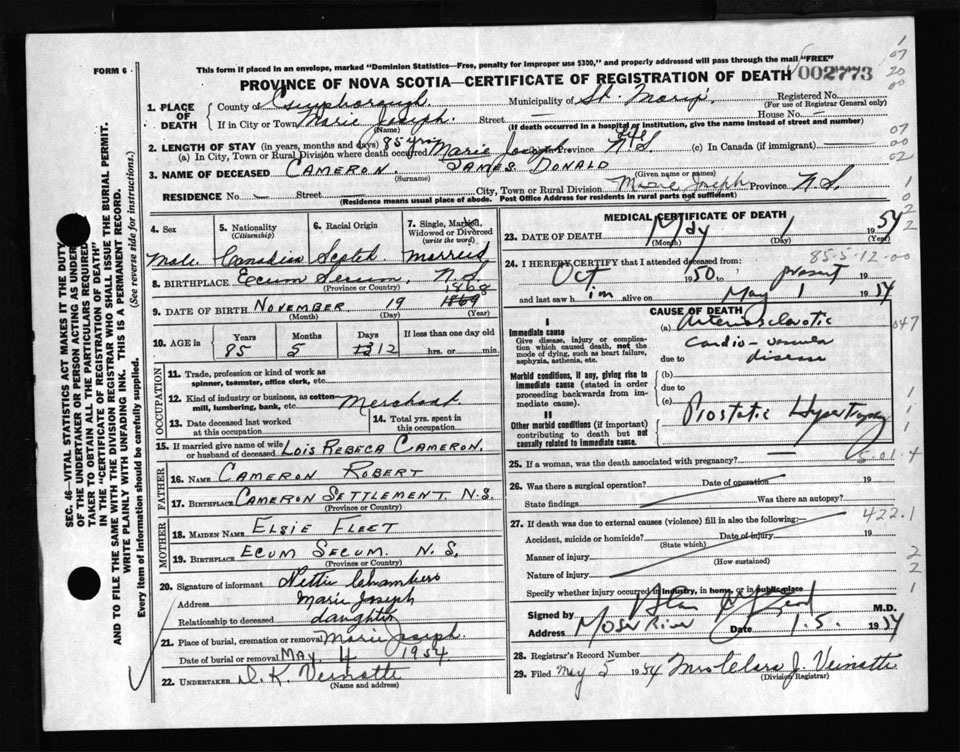 FORM 6
This form if placed in an envelope, marked "Dominion Statistics—Free, penalty for improper use $300," and properly addressed will pass through the mail "FREE"
PROVINCE OF NOVA SCOTIA—CERTIFICATE OF REGISTRATION OF DEATH 002773
1. PLACE OF DEATH County of Guysborough Municipality of St. Mary's Registered No.
(For use of Registrar General only)
If in City or Town Marie Joseph. Street House No.
(Name) (If death occurred in a hospital or institution, give the name instead of street and number)
2. LENGTH OF STAY (in years, months and days) 85 yrs
(a) In City, Town or Rural Division where death occurred Marie Joseph Province N.S. (c) In Canada (if immigrant)
3. NAME OF DECEASED CAMERON. JAMES DONALD
(Surname) (Given name or names)
RESIDENCE No. Street City, Town or Rural Division Marie Joseph Province N.S.
(Residence means usual place of abode. Post Office Address for residents in rural parts not sufficient)
4. Sex 5. Nationality (Citizenship) 6. Racial Origin 7. Single, Married, Widowed or Divorced (write the word)
Male. Canadian Scotch married
8. BIRTHPLACE Ecum Secum, N.S.
(Province or Country)
9. DATE OF BIRTH NOVEMBER 19 1868 1869
(Month) (Day) (Year)
10. AGE in Years Months Days If less than one day old
85 5 12 hrs. or min.
OCCUPATION
11. Trade, profession or kind of work as spinner, teamster, office clerk, etc.
12. Kind of industry or business, as cotton-mill, lumbering, bank, etc. Merchant
13. Date deceased last worked at this occupation 14. Total yrs. spent in this occupation.
15. If married give name of wife or husband of deceased LOIS REBECA CAMERON.
FATHER
16. NAME CAMERON ROBERT
17. BIRTHPLACE CAMERON SETTLEMENT. N.S.
(Province or Country)
MOTHER
18. MAIDEN NAME ELSIE FLEET
19. BIRTHPLACE ECUM SECUM. N.S.
(Province or Country)
20. Signature of informant Nettie Chambers
Address Marie Joseph
Relationship to deceased daughter
21. Place of burial, cremation or removal Marie Joseph.
Date of burial or removal MAY. 4 1954
22. UNDERTAKER D. K. Veinotte
(Name and address)
MEDICAL CERTIFICATE OF DEATH
23. DATE OF DEATH May 1 1954
(Month) (Day) (Year)
85-5-12-00
24. I HEREBY CERTIFY that I attended deceased from:
Oct 1950 present
and last saw him alive on May 1 1954
CAUSE OF DEATH
I
Immediate cause
Give disease, injury or complication which caused death, not the mode of dying, such as heart failure, asphyxia, asthenia, etc.
(a) Arteriosclerotic
cardio-vascular
due to disease
Morbid conditions, if any, giving rise to immediate cause (stated in order proceeding backwards from immediate cause).
(b)
due to
(c)
II
Other morbid conditions (if important) contributing to death but not causally related to immediate cause.
Prostatic Hypertrophy
25. If a woman, was the death associated with pregnancy?
26. Was there a surgical operation? Date of operation 19
State findings Was there an autopsy?
27. If death was due to external causes (violence) fill in also the following:— 422.1
Accident, suicide or homicide? Date of injury 19
(State which)
Manner of injury
(How sustained)
Nature of injury
Specify whether injury occurred in industry, in home, or in public place
Signed by M.D.
Address Moser River Date 1.5. 1954
28. Registrar's Record Number
29. Filed May 5 1954 Mrs Clara J. Veinotte
(Division Registrar)
SEC. 46—VITAL STATISTICS ACT MAKES IT THE DUTY OF THE UNDERTAKER OR PERSON ACTING AS UNDERTAKER TO OBTAIN ALL THE PARTICULARS REQUIRED IN THE "CERTIFICATE OF REGISTRATION OF DEATH" AND TO FILE THE SAME WITH THE DIVISION REGISTRAR WHO SHALL ISSUE THE BURIAL PERMIT.
WRITE PLAINLY WITH UNFADING INK. THIS IS A PERMANENT RECORD.
Every item of information should be carefully supplied. (See reverse side for instructions.)